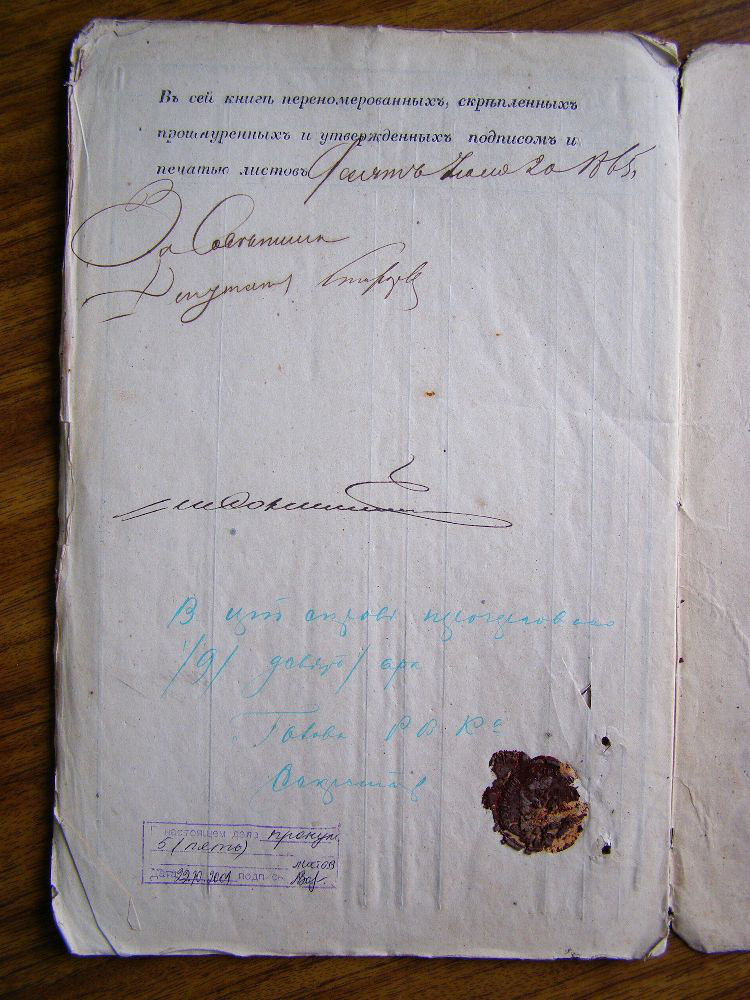 Въ сей книгѣ переномерованныхъ, скрѣпленныхъ
прошнуренныхъ и утвержденныхъ подписомъ и
печатью листовъ Девять Июля 20 1865
За
Депутатъ
В цій справі пронумеровано
/9/ девять/ арк
Голова Р В К
Секретар
В настоящем деле пронум
5 (пять)
листов
Дата 22.XI.2001 подпись